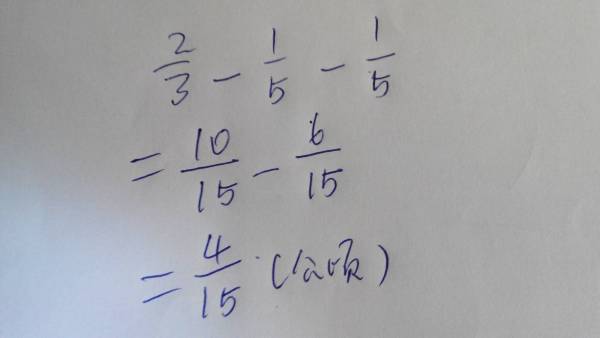 2/3 - 1/5 - 1/5
= 10/15 - 6/15
= 4/15 (公顷)